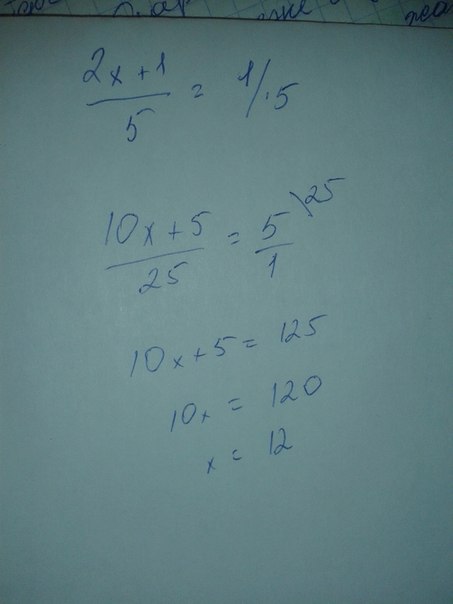 2x+1/5 = 1/·5
10x+5/25 = 5/1 \25
10x+5 = 125
10x = 120
x = 12